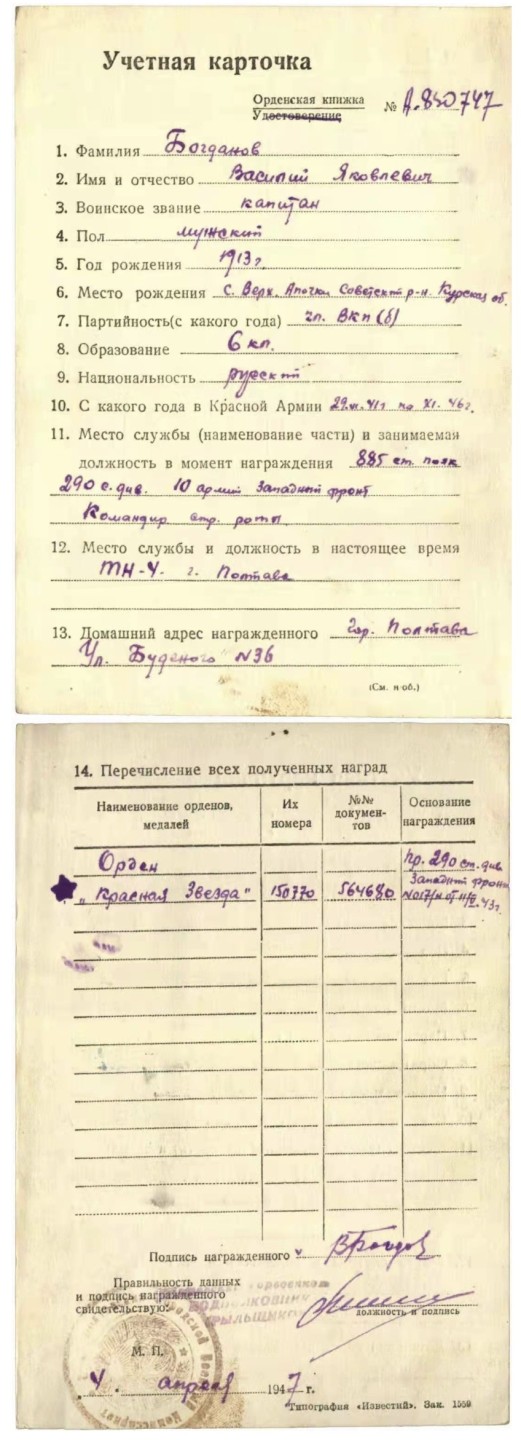 Учетная карточка
Орденская книжка
Удостоверение
№ А.830747
1. Фамилия Богданов
2. Имя и отчество Василий Яковлевич
3. Воинское звание капитан
4. Пол мужский
5. Год рождения 1913 г.
6. Место рождения с. Верх. Апочки Советский р-н. Курская об.
7. Партийность(с какого года) чл. ВКП(б)
8. Образование 6 кл.
9. Национальность русский
10. С какого года в Красной Армии 29.VI.41г по XI.46г.
11. Место службы (наименование части) и занимаемая
должность в момент награждения 885 ст. полк
290 с. див. 10 армии Западный фронт
Командир стр. роты
12. Место службы и должность в настоящее время
г. Полтава
13. Домашний адрес награжденного гор. Полтава
Ул. Буденого N36
(См. н об.)
14. Перечисление всех полученных наград
Наименование орденов, медалей
Их номера
№№ документов
Основание награждения
Орден
„Красная Звезда"
150770
564680
Пр. 290 ст. див.
Западный фронт
Подпись награжденного
Правильность данных
и подпись награжденного
свидетельствую:
должность и подпись
М. П.
„4" апреля 1947 г.
Типография «Известий». Зак. 1559